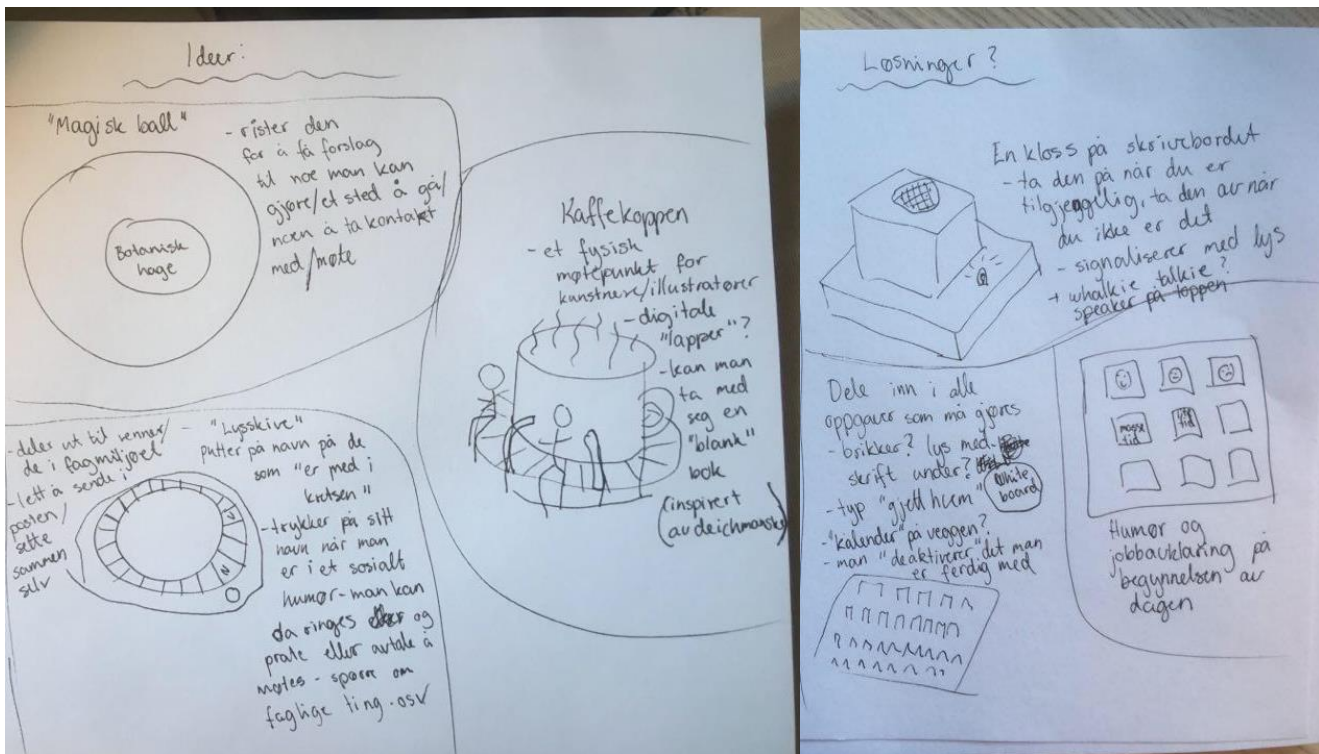 Ideer:
"Magisk ball"
- rister den
for å få forslag
til noe man kan
gjøre/et sted å gå/
noen å ta kontakt
med/møte
Botanisk
hage
Kaffekoppen
- et fysisk
møtepunkt for
kunstnere/illustratører
- digitale
"lapper"?
- kan man
ta med
seg en
"blank"
bok
(inspirert
av deichmanske)
- deler ut til venner/
de i fagmiljøet
- lett å sende i
posten/
sette
sammen
selv
- "Lysskive"
putter på navn på de
som "er med i
kretsen"
- trykker på sitt
navn når man
er i et sosialt
humør - man kan
da ringes og
prate eller avtale å
møtes - spørre om
faglige ting. osv
Løsninger?
En kloss på skrivebordet
- ta den på når du er
tilgjeggelig, ta den av når
du ikke er det
- signaliserer med lys
+ whalkie talkie?
speaker på toppen
Dele inn i alle
oppgaver som må gjøres
- brikker? lys med
skrift under?
- typ "gjett hvem"
White
board
- "kalender" på veggen?
- man "deaktiverer" det man
er ferdig med
masse
tid
tid
Humør og
jobbavklaring på
begynnelsen av
dagen